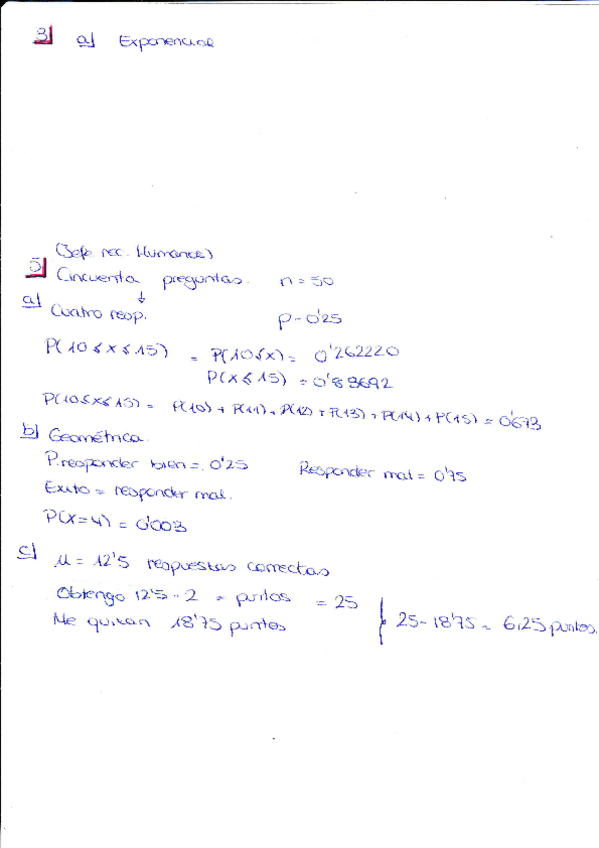 3 a) Exponencial
(Jefe rec. Humanos)
5 Cincuenta preguntas. n = 50
a) Cuatro resp. p = 0'25
P(10 ≤ x ≤ 15) = P(10 ≤ x) = 0'262220
P(x ≤ 15) = 0'83692
P(10 ≤ x ≤ 15) = P(10) + P(11) + P(12) + P(13) + P(14) + P(15) = 0'673
b) Geométrica.
P. responder bien = 0'25 Responder mal = 0'75
Exito = responder mal.
P(X = 4) = 0'003
c) μ = 12'5 respuestas correctas
Obtengo 12'5 · 2 = puntos = 25
Me quitan 18'75 puntos } 25 - 18'75 = 6,25 puntos.